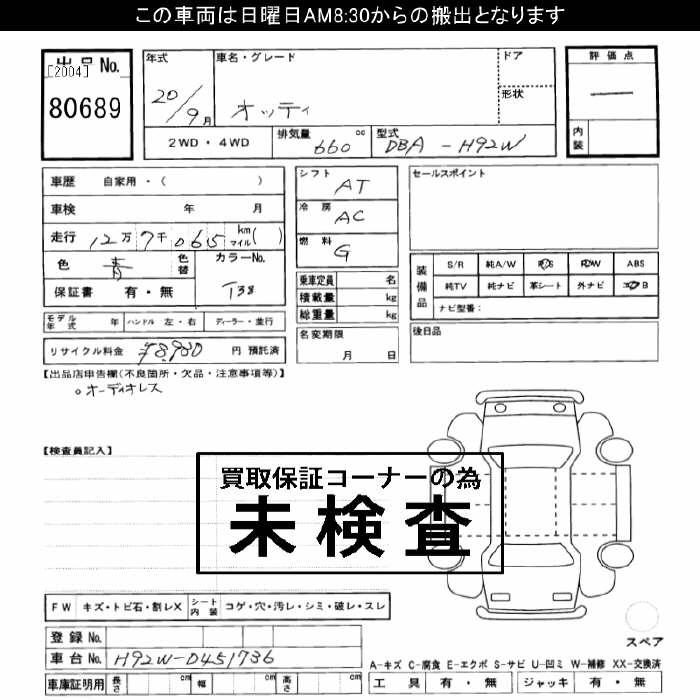 この車両は日曜日AM8:30からの搬出となります
出品No.
[2004]
80689
年式
20/9月
車名・グレード
オッティ
ドア
形状
2WD・4WD
排気量
660 cc
型式
DBA-H92W
評価点
内装
車歴 自家用・( )
車検 年 月
走行 12万7千065 km マイル( )
色 青 色替
カラーNo.
T38
保証書 有・無
シフト
AT
冷房
AC
燃料
G
乗車定員 名
積載量 kg
総重量 kg
セールスポイント
装備品
S/R 純A/W P/S P/W ABS
純TV 純ナビ 革シート 外ナビ エアB
ナビ型番:
モデル年式 年 ハンドル 左・右 ディーラー・並行
リサイクル料金 ¥8,980 円 預託済
名変期限
月 日
後日品
【出品店申告欄(不良箇所・欠品・注意事項等)】
○オーディオレス
【検査員記入】
買取保証コーナーの為
未検査
FW キズ・トビ石・割レX シート内装 コゲ・穴・汚レ・シミ・破レ・スレ
登録No.
車台No. H92W-0451736
車庫証明用 長さ cm 幅 cm 高さ cm
スペア
A-キズ C-腐食 E-エクボ S-サビ U-凹ミ W-補修 XX-交換済
工具 有・無 ジャッキ 有・無